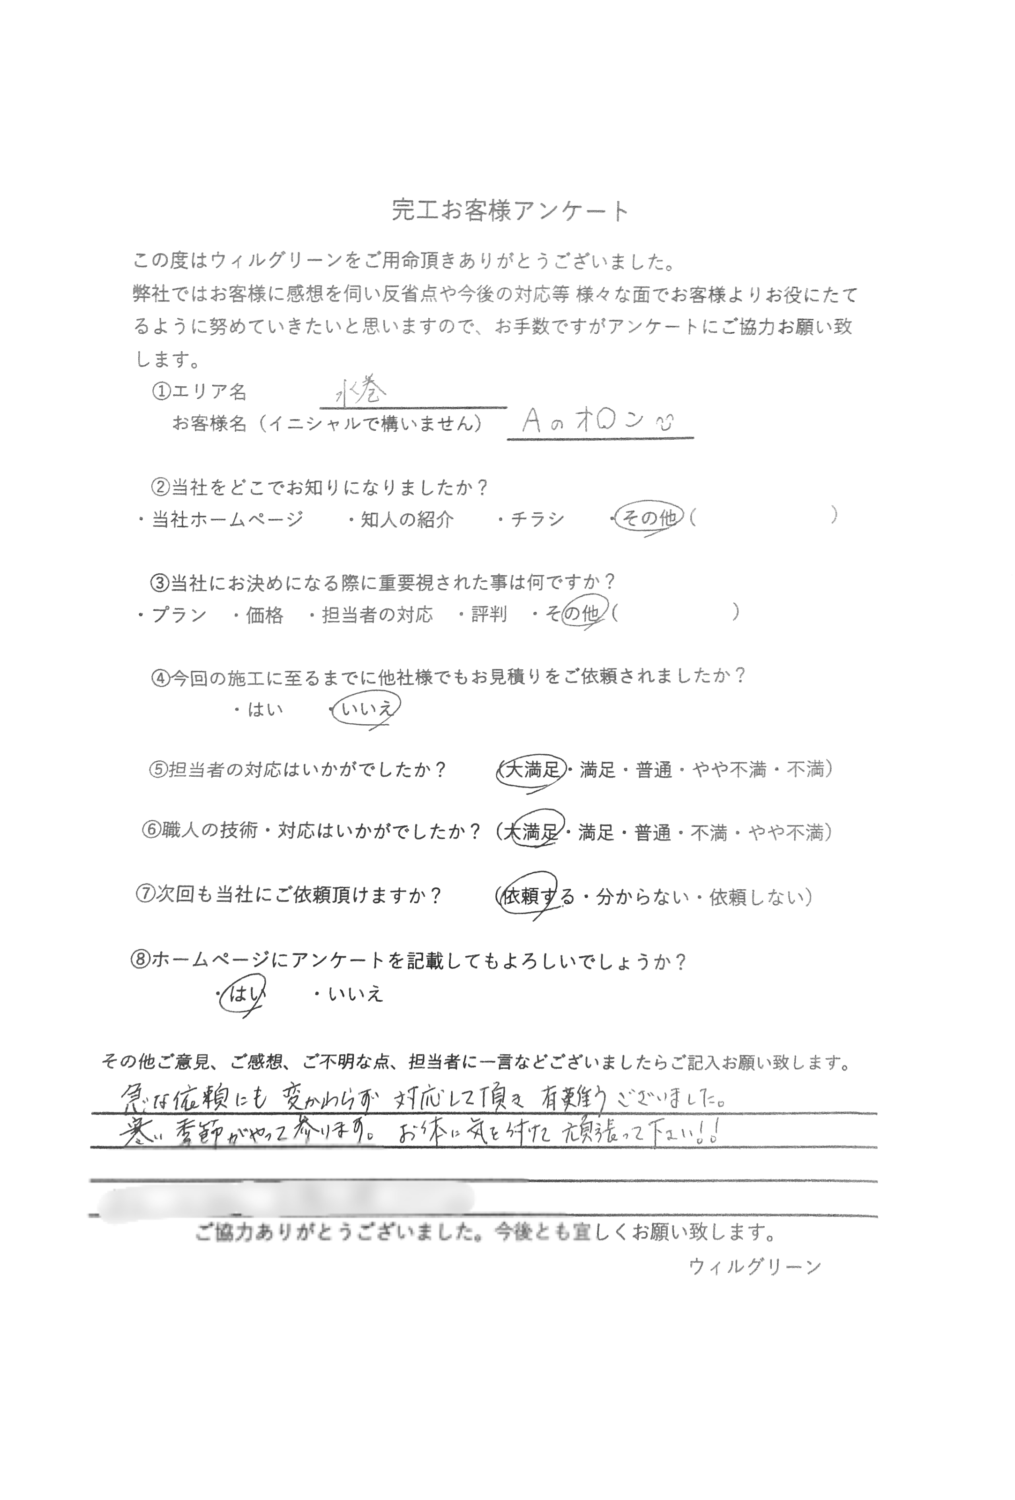 完工お客様アンケート
この度はウィルグリーンをご用命頂きありがとうございました。
弊社ではお客様に感想を伺い反省点や今後の対応等 様々な面でお客様よりお役にたて
るように努めていきたいと思いますので、お手数ですがアンケートにご協力お願い致
します。
①エリア名 水巻
お客様名（イニシャルで構いません） Aのオロン
②当社をどこでお知りになりましたか？
・当社ホームページ ・知人の紹介 ・チラシ ・その他（ ）
③当社にお決めになる際に重要視された事は何ですか？
・プラン ・価格 ・担当者の対応 ・評判 ・その他（ ）
④今回の施工に至るまでに他社様でもお見積りをご依頼されましたか？
・はい ・いいえ
⑤担当者の対応はいかがでしたか？ （大満足・満足・普通・やや不満・不満）
⑥職人の技術・対応はいかがでしたか？（大満足・満足・普通・不満・やや不満）
⑦次回も当社にご依頼頂けますか？ （依頼する・分からない・依頼しない）
⑧ホームページにアンケートを記載してもよろしいでしょうか？
・はい ・いいえ
その他ご意見、ご感想、ご不明な点、担当者に一言などございましたらご記入お願い致します。
急な依頼にも 変かわらず 対応して頂き 有難うございました。
寒い季節がやって参ります。 お体に気を付けて 頑張って下さい!!
ご協力ありがとうございました。今後とも宜しくお願い致します。
ウィルグリーン